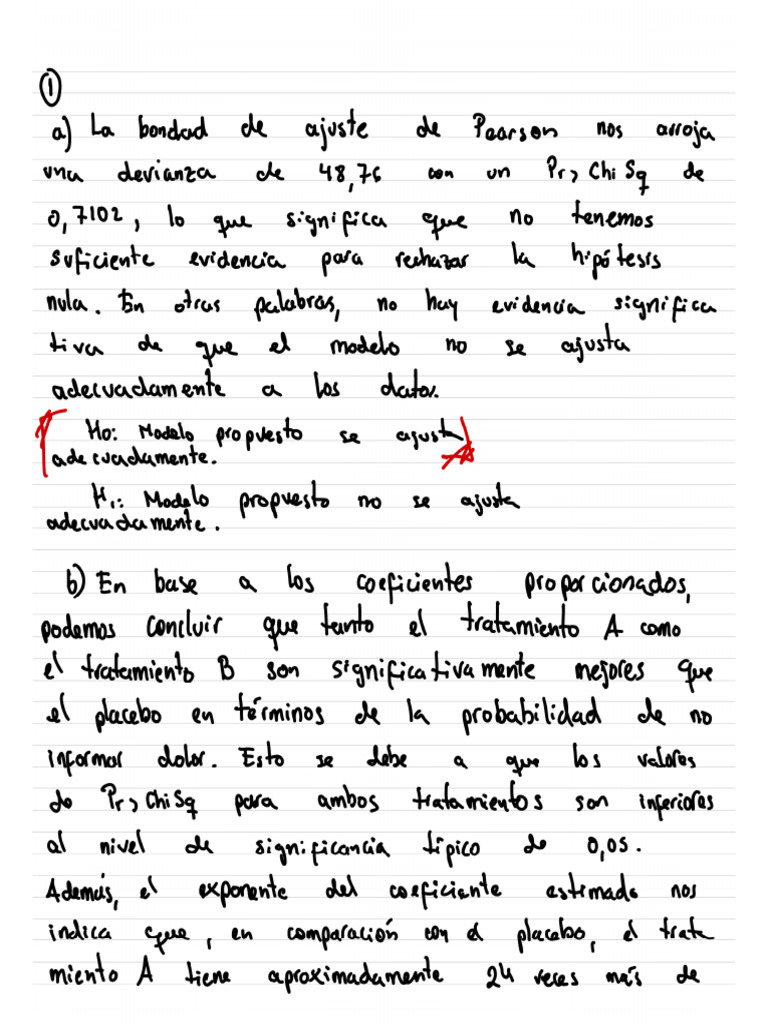 1
a) La bondad de ajuste de Pearson nos arroja
una devianza de 48,76 con un Pr > Chi Sq de
0,7102, lo que significa que no tenemos
suficiente evidencia para rechazar la hipótesis
nula. En otras palabras, no hay evidencia significa
tiva de que el modelo no se ajusta
adecuadamente a los datos.
Ho: Modelo propuesto se ajusta
adecuadamente.
H1: Modelo propuesto no se ajusta
adecuadamente.
b) En base a los coeficientes proporcionados,
podemos concluir que tanto el tratamiento A como
el tratamiento B son significativamente mejores que
el placebo en términos de la probabilidad de no
informar dolor. Esto se debe a que los valores
de Pr > Chi Sq para ambos tratamientos son inferiores
al nivel de significancia típico de 0,05.
Además, el exponente del coeficiente estimado nos
indica que, en comparación con el placebo, el trata
miento A tiene aproximadamente 24 veces más de